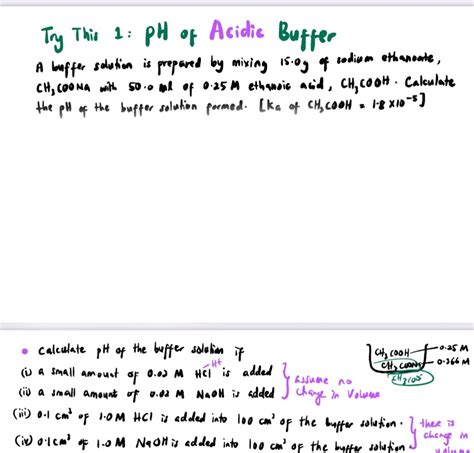 Try This 1: pH of Acidic Buffer
A buffer solution is prepared by mixing 15.0g of sodium ethanoate,
CH₃COONa with 50.0 ml of 0.25 M ethanoic acid, CH₃COOH. Calculate
the pH of the buffer solution formed. [Ka of CH₃COOH = 1.8 x10⁻⁵]
• Calculate pH of the buffer solution if
(i) a small amount of 0.02 M HCl is added
H⁺
(ii) a small amount of 0.02 M NaOH is added
assume no
change in Volume
CH₃COOH 0.25 M
CH₃COONa 0.366 M
CH₃COO⁻
(iii) 0.1 cm³ of 1.0M HCl is added into 100 cm³ of the buffer solution.
(iv) 0.1cm³ of 1.0 M NaOH is added into 100 cm³ of the buffer solution
there is
change in
volume